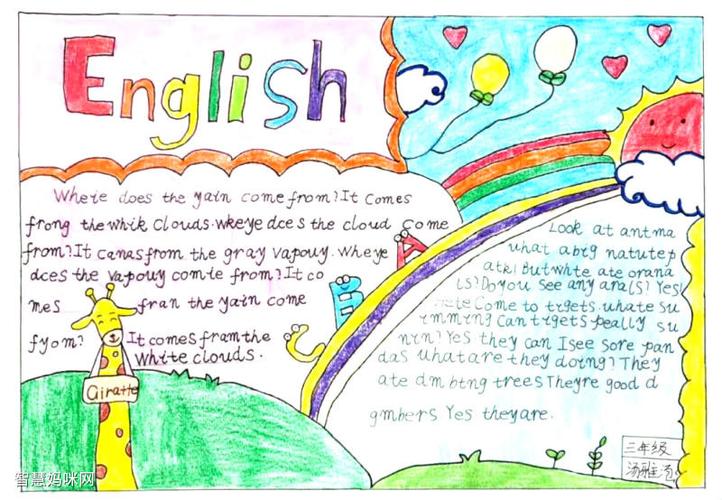 English
Wheie does the yain come from?It Comes
frong the whik Clouds.wkeye dces the cloud come
from?It canas from the gray Vapouy. Wheye
dces the vapouy comie from?It co
mes fran the yain come
fyom? It comes fram the
White clouds.
Giratte
A
B
C
Look at antma
uhat abtg natutep
atkl but whte ate orana
ls? Do you See any arals? Yes!
Come to trgets. uhate su
imming Can trgets peally su
nrn? Yes they can I see sore pan
das uhat are they doing? They
ate dm btng trees Theyre good d
gmbers Yes they are.
三年级
汤雅涵
智慧妈咪网